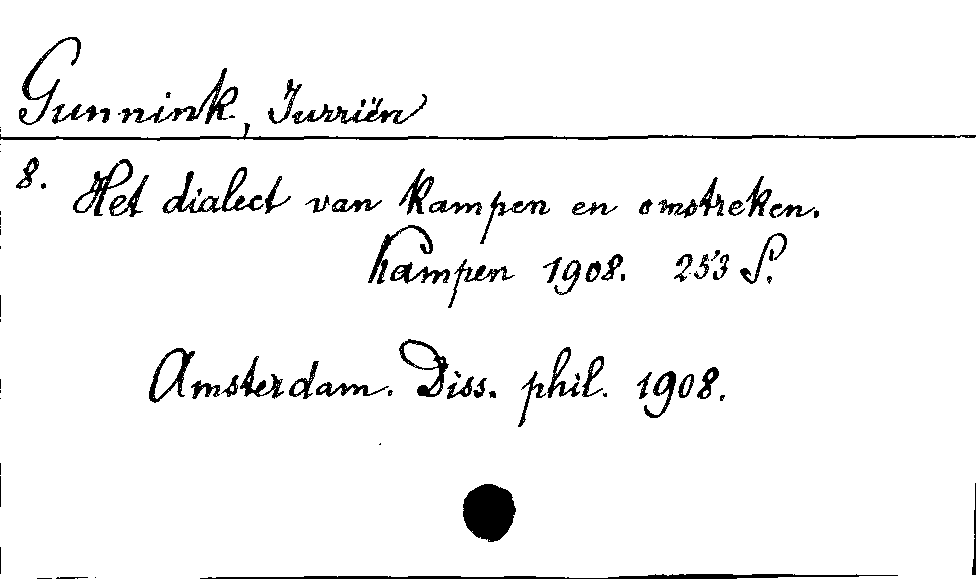 Gunnink, Jurriën
8. Het dialect van Kampen en omstreken.
Kampen 1908. 253 S.
Amsterdam. Diss. phil. 1908.